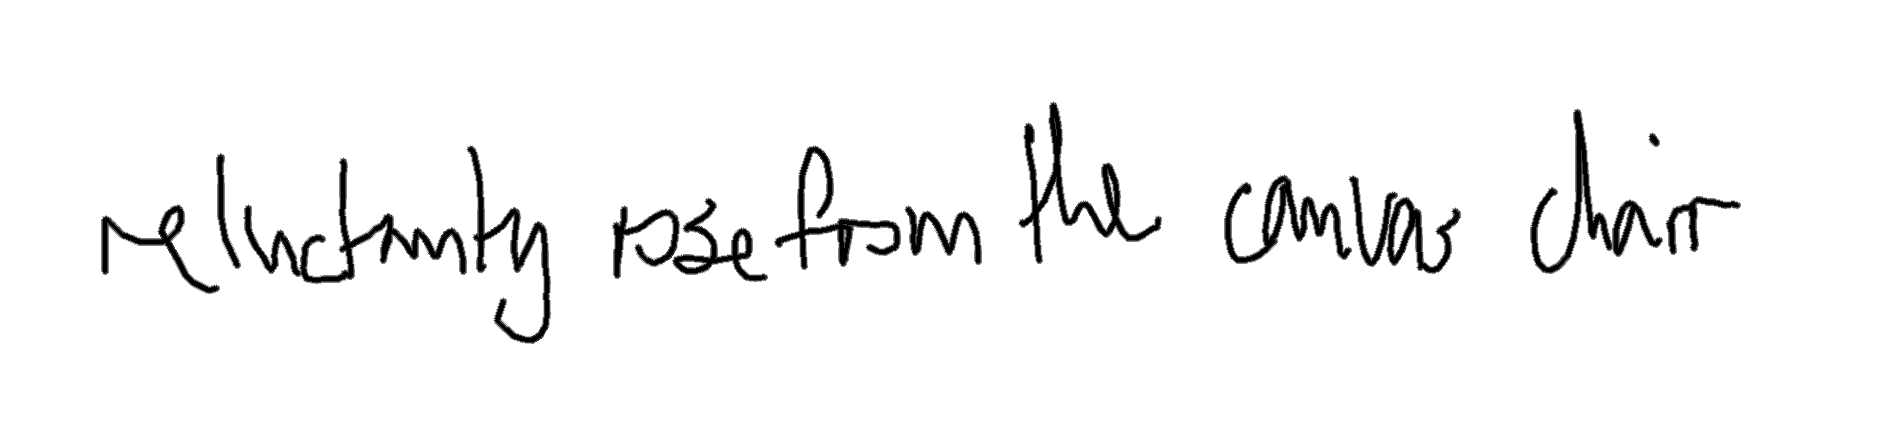 reluctantly rose from the canvas chair